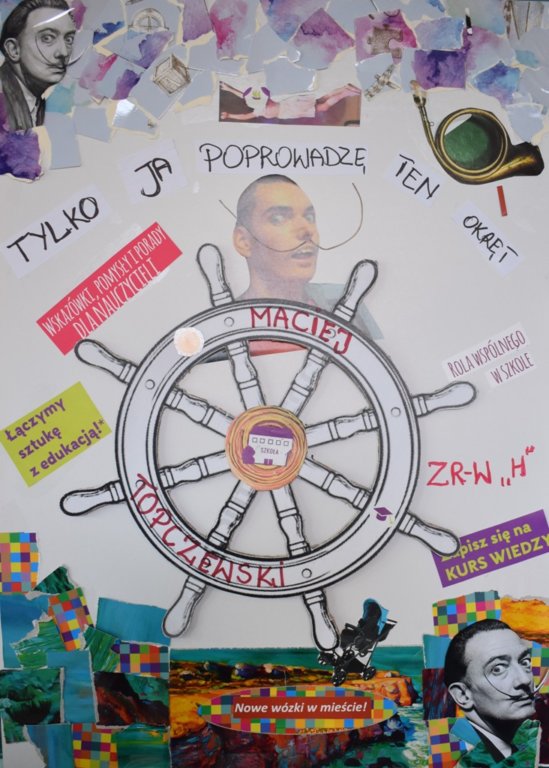 TYLKO JA POPROWADZĘ TEN OKRĘT
WSKAZÓWKI, POMYSŁY I PORADY
DLA NAUCZYCIELI
MACIEJ
ROLA WSPÓLNEGO
W SZKOLE
Łączymy
sztukę
z edukacją!*
SZKOŁA
ZR-W „H"
TOPCZEWSKI
Zapisz się na
KURS WIEDZY
Nowe wózki w mieście!